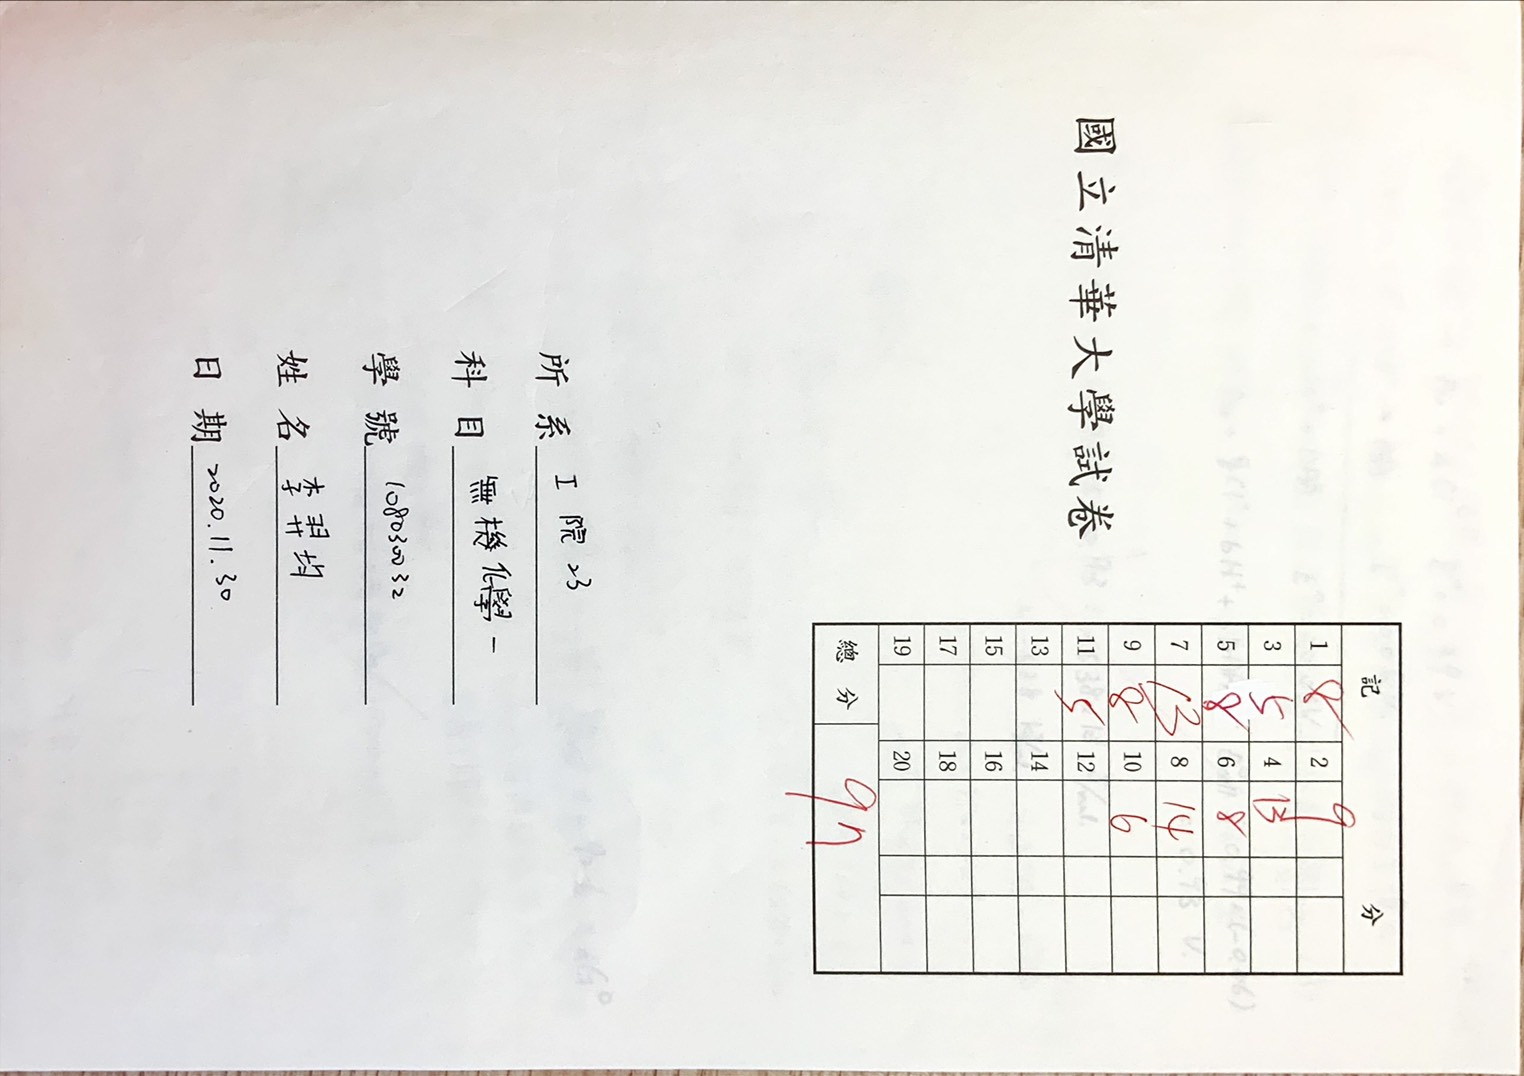 記 分
1 8 2 9
3 5 4 13
5 8 6 8
7 13 8 14
9 8 10 6
11 5 12
13 14
15 16
17 18
19 20
總 分 97
國立清華大學試卷
所 系 工院23
科 目 無機化學一
學 號 108030032
姓 名 李羿均
日 期 2020.11.30